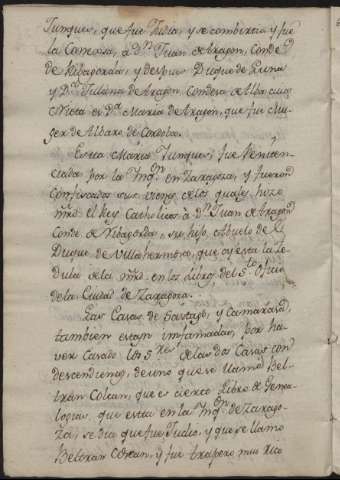 Junques, que fue Judia, y se combertio y fue
la Conversa, a Dn. Juan de Aragon, Conde
de Ribagorda, y despues Duque de Luna
y Dª. Juliana de Aragon, Condesa de Alba cuia
Nieta es Dª. Maria de Aragon, que fue Mu-
ger de Albaro de Cordoba.
Esta Maria Junques, fue Peniten
ciada por la Ynqon. en Zaragoza, y fueron
confiscados sus vienes, de los quales, hizo
mrd. el Rey Catholico a Dn. Juan de Aragon
Conde de Ribagorda, su hijo, Abuelo de el
Duque de Villahermosa, que oy esta la Ze-
dula de la mrd. en los Libros del Sto. Ofizio
de la Ciudad de Zaragoza.
Las Casas de Santiago, y Camarasa
tambien estan infamadas, por ha-
ver Casado los Sres. de las dos Casas con
descendencia, de uno que se llamo Bel-
tran Coscan, que es cierto Libro de Genea-
logias, que esta en la Ynqon. de Zarago-
za, se dice que fue Judio, y que se llamo
Beltran Coscan, y fue trapero mui Rico